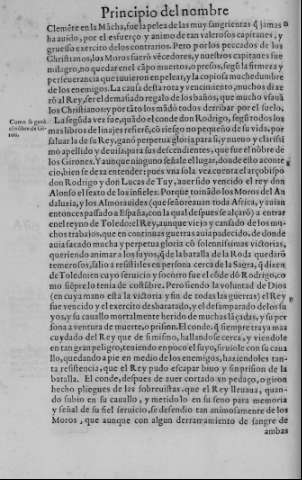 Principio del nombre
Clemẽte en la Mãcha, fue la pelea de las muy sangrientas q̃ jamas
ha auido, por el esfuerço y animo de tan valerosos capitanes, y
gruesso exercito de los contrarios. Pero por los peccados de los
Christianos, los Moros fuerõ vẽcedores, y nuestros capitanes fue
milagro, no quedar en el cãpo muertos, o presos, segũ la firmeza y
perseuerancia que tuuieron en pelear, y la copiosa muchedumbre
de los enemigos. La causa desta rota y vencimiento, muchos dizẽ
rõ al Rey, ser el demasiado regalo de los baños, que mucho vsauã
los Christianos: y por tãto los mãdò todos derribar por el suelo.
Como se ganò
el nõbre de Gi-
ron.
La segũda vez fue, quãdo el conde don Rodrigo, segũ todos los
mas libros de linajes refierẽ, cõ riesgo no pequeño de su vida, por
saluar la de su Rey, ganò perpetua gloria para si, y nueuo y clarissi
mo apellido y deuisa para sus descendientes, que fue el nõbre de
los Girones. Y aunque ninguno señale el lugar, donde esto aconte
cio, bien se dexa entender: pues vna sola vez cuenta el arçobispo
don Rodrigo y don Lucas de Tuy, auer sido vencido el rey don
Alonso el sexto de los infieles. Porque toinãdo los Moros del An
daluzia, y los Almorauides (que señoreauan toda Africa, y auian
entonces passado a España, con la qual despues se alçarõ) a entrar
en el reyno de Toledo: el Rey, aunque viejo y cansado de los mu-
chos trabajos, que en continuas guerras auia padecido, de donde
auia sacado mucha y perpetua gloria cõ solennissimas victorias,
queriendo animar a los suyos, q̃ de la batalla de la Roda quedarõ
temerosos, salio a resistilles en persona cerca de la Sagra, q̃ dizen
de Toledo: en cuyo seruicio y socorro fue el cõde dõ Rodrigo, co
mo siẽpre lo tenia de costũbre. Pero siendo la voluntad de Dios
(en cuya mano està la victoria y fin de todas las guerras) el Rey
fue vencido y el exercito desbaratado, y el desamparado de los su
yos, y su cauallo mortalmente herido de muchas lãçadas, y su per
sona a ventura de muerte, o prison. El conde, q̃ siempre traya mas
cuydado del Rey que de si mismo, hallandose cerca, y viendole
en tan gran peligro, teniendo en poco el suyo, siruiole con su caua
llo, quedando a pie en medio de los enemigos, haziendoles tan-
ta resistencia, que el Rey pudo escapar biuo y sin prision de la
batalla. El conde, despues de auer cortado vn pedaço, o giron
hecho pliegues de las sobreuistas, que el Rey lleuaua, quan-
do subio en su cauallo, y metidolo en su seno para memoria
y señal de su fiel seruicio, se defendio tan animosamente de los
Moros, que aunque con algun derramamiento de sangre de
ambas